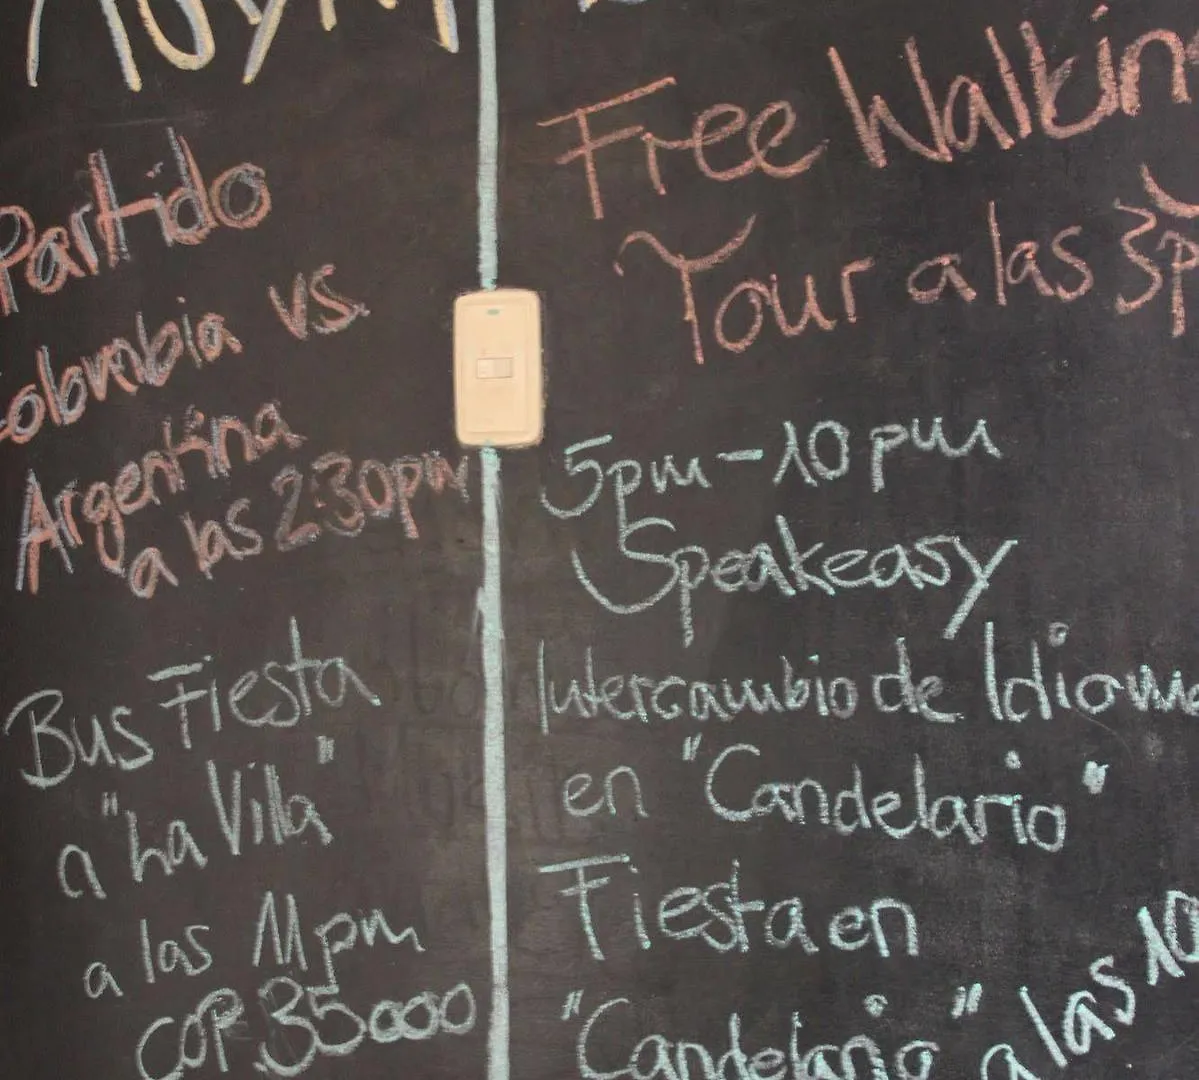 Partido
Colombia vs.
Argentina
a las 2:30pm
Bus Fiesta
a "La Villa"
a las 11pm
COP.35000
Free Walkin
Tour a las 3p
5pm-10pm
Speakeasy
Intercambio de Idioma
en "Candelario"
Fiesta en
"Candelario" a las 10